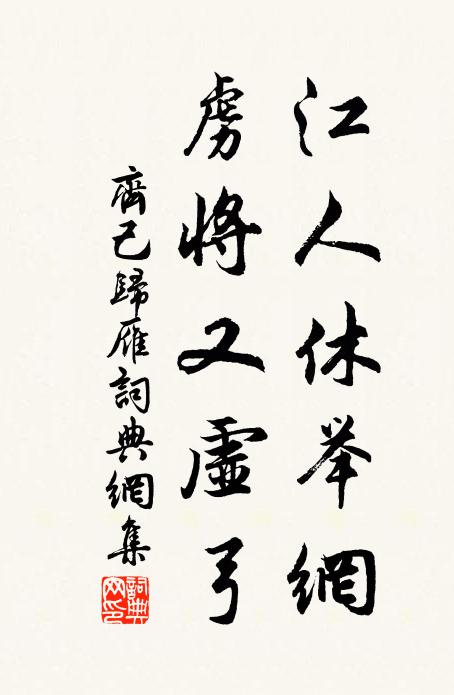 江人休举網
虏將又虛弓
齊己歸雁詞典網集
詞典網印